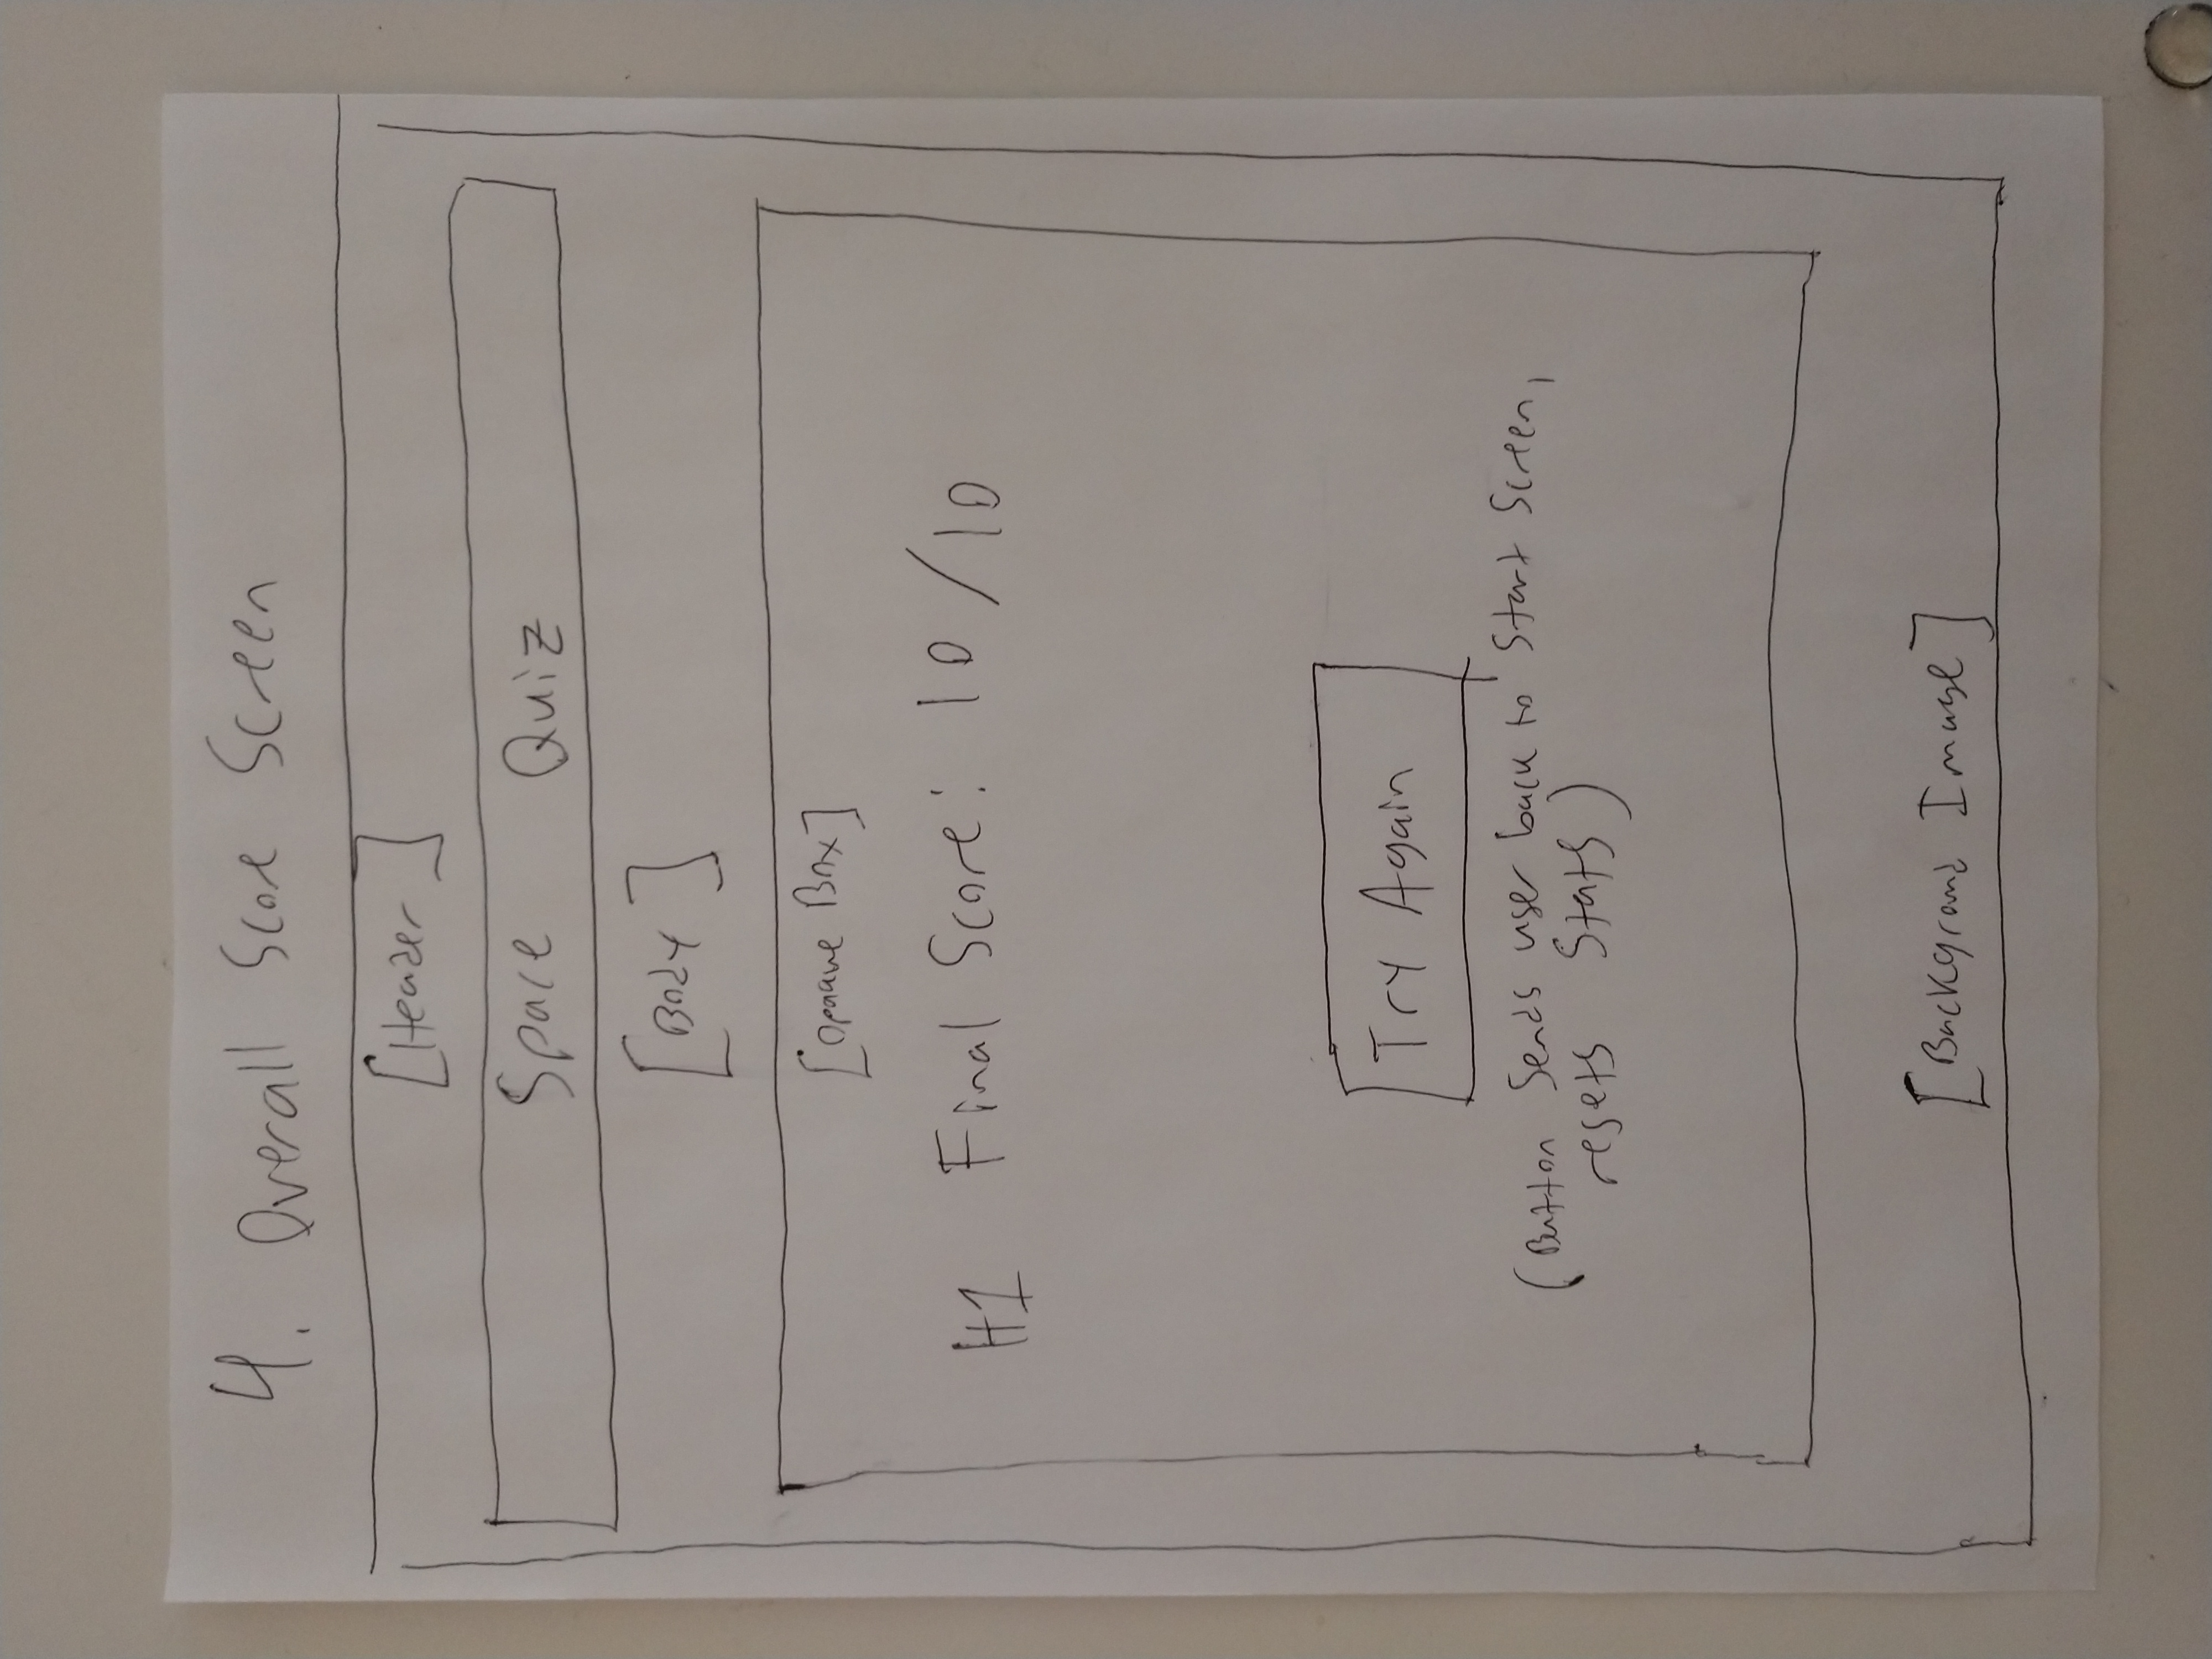 4. Overall Score Screen
[Header]
Space Quiz
[Body]
[Opaque Box]
H1 Final Score: 10/10
Try Again
(Button Sends user back to Start Screen,
resets Stats)
[Background Image]